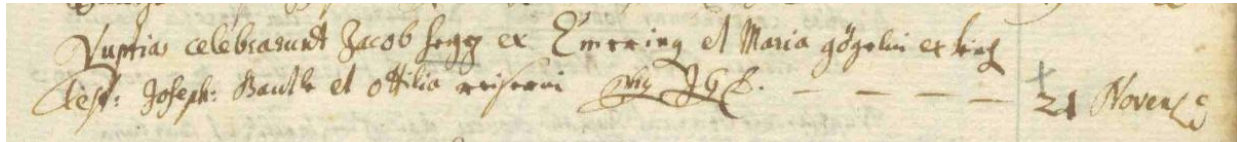 Nuptias celebrarunt Jacob hegg ex Emering et Maria gögelin ex
Test: Joseph: Bantle et Ottilia reiserin 21 Novemb